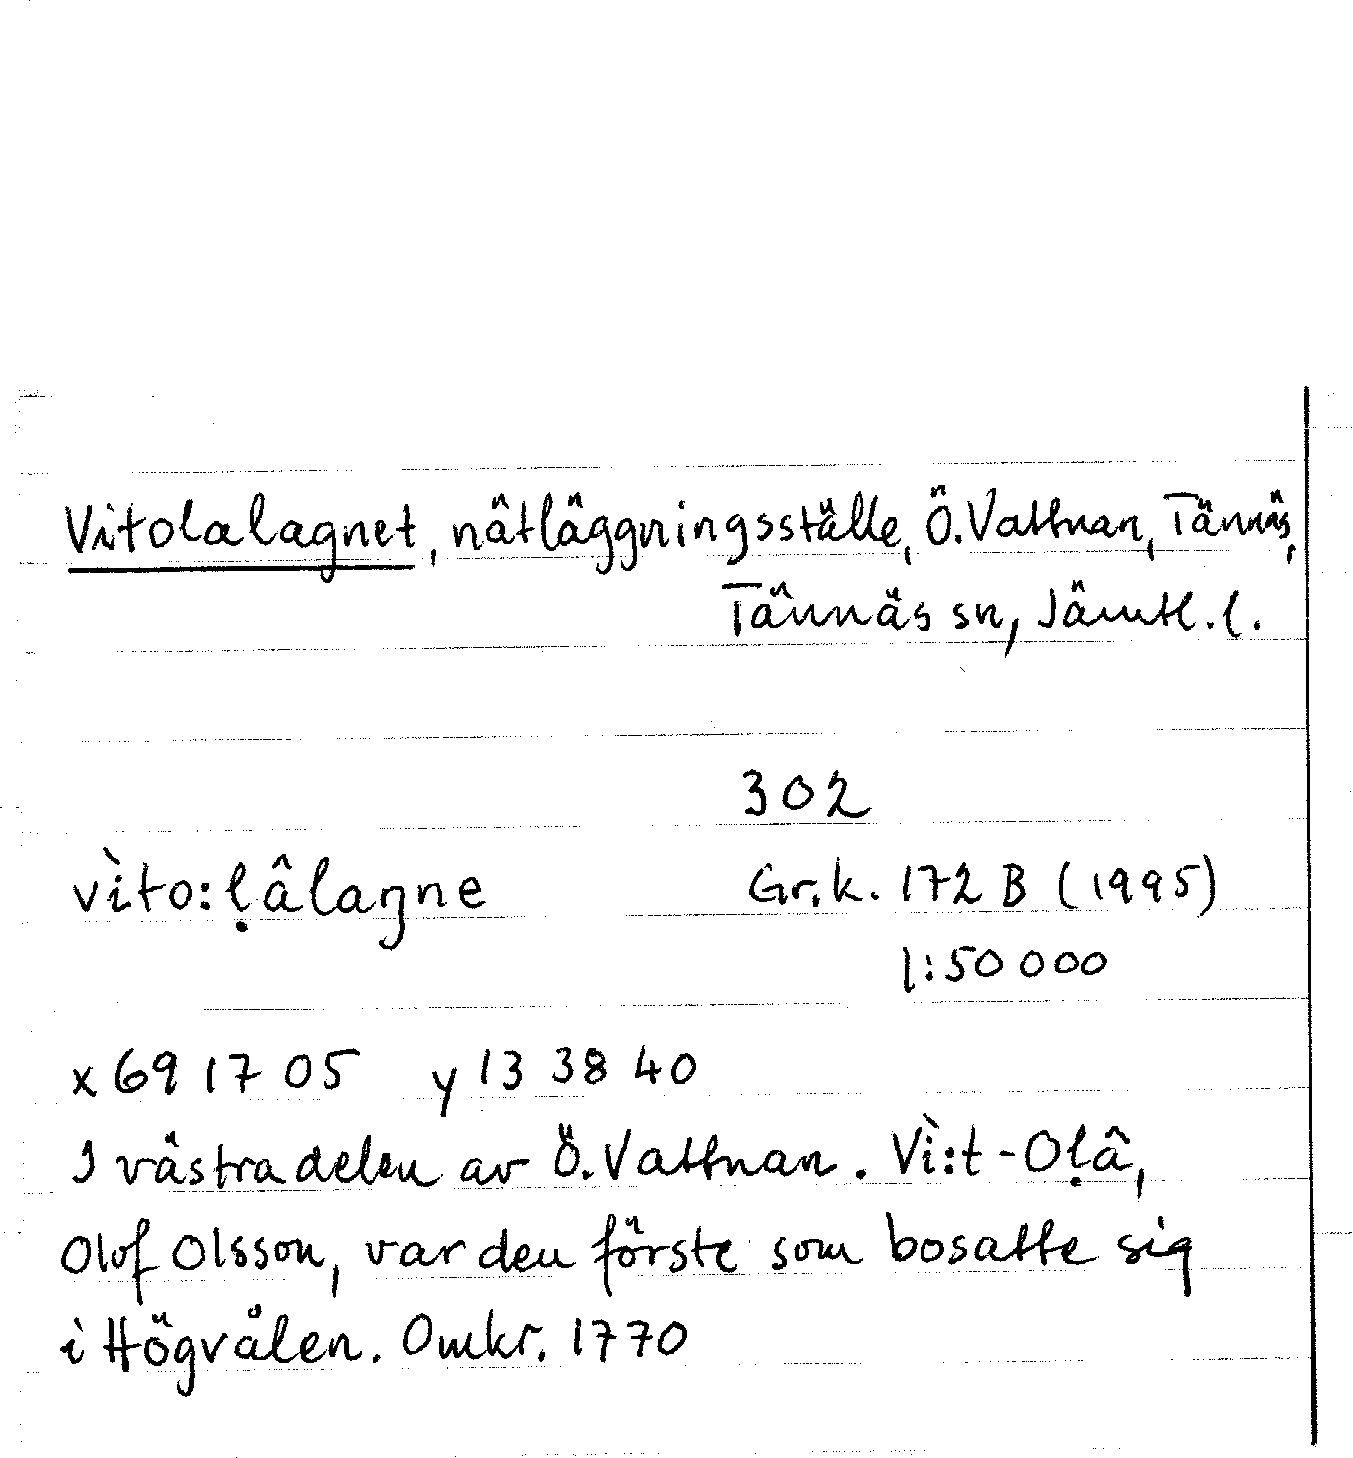 Vitolalagnet, nätläggningsställe, Ö. Vattnan, Tännäs,
Tännäs sn, Jämtl. l.
302
vìto:ḷâlaŋne Gr.k. 172 B (1995)
1:50 000
x 69 17 05 y 13 38 40
I västra delen av Ö. Vattnan. Vì:t-Oḷâ,
Olof Olsson, var den förste som bosatte sig
i Högvålen. Omkr. 1770